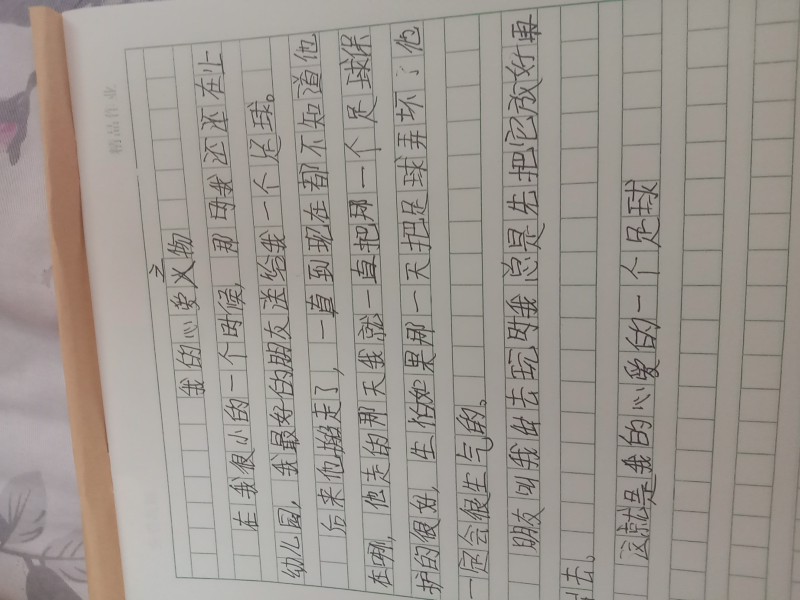 精品作业
我的心爱之物
在我很小的一个时候，那时我还还在上
幼儿园，我最好的朋友送给我一个足球。
后来他搬走了，一直到现在都不知道他
在哪，他走的那天我就一直把那一个足球保
护的很好，生怕如果那一天把足球弄坏了他
一定会很生气的。
朋友叫我出去玩时我总是先把它放好再
出去。
这就是我的心爱的一个足球